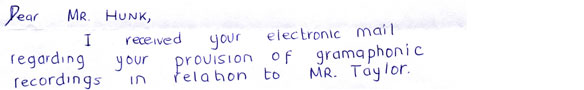 Dear MR. HUNK,
I received your electronic mail
regarding your provision of gramaphonic
recordings in relation to MR. Taylor.